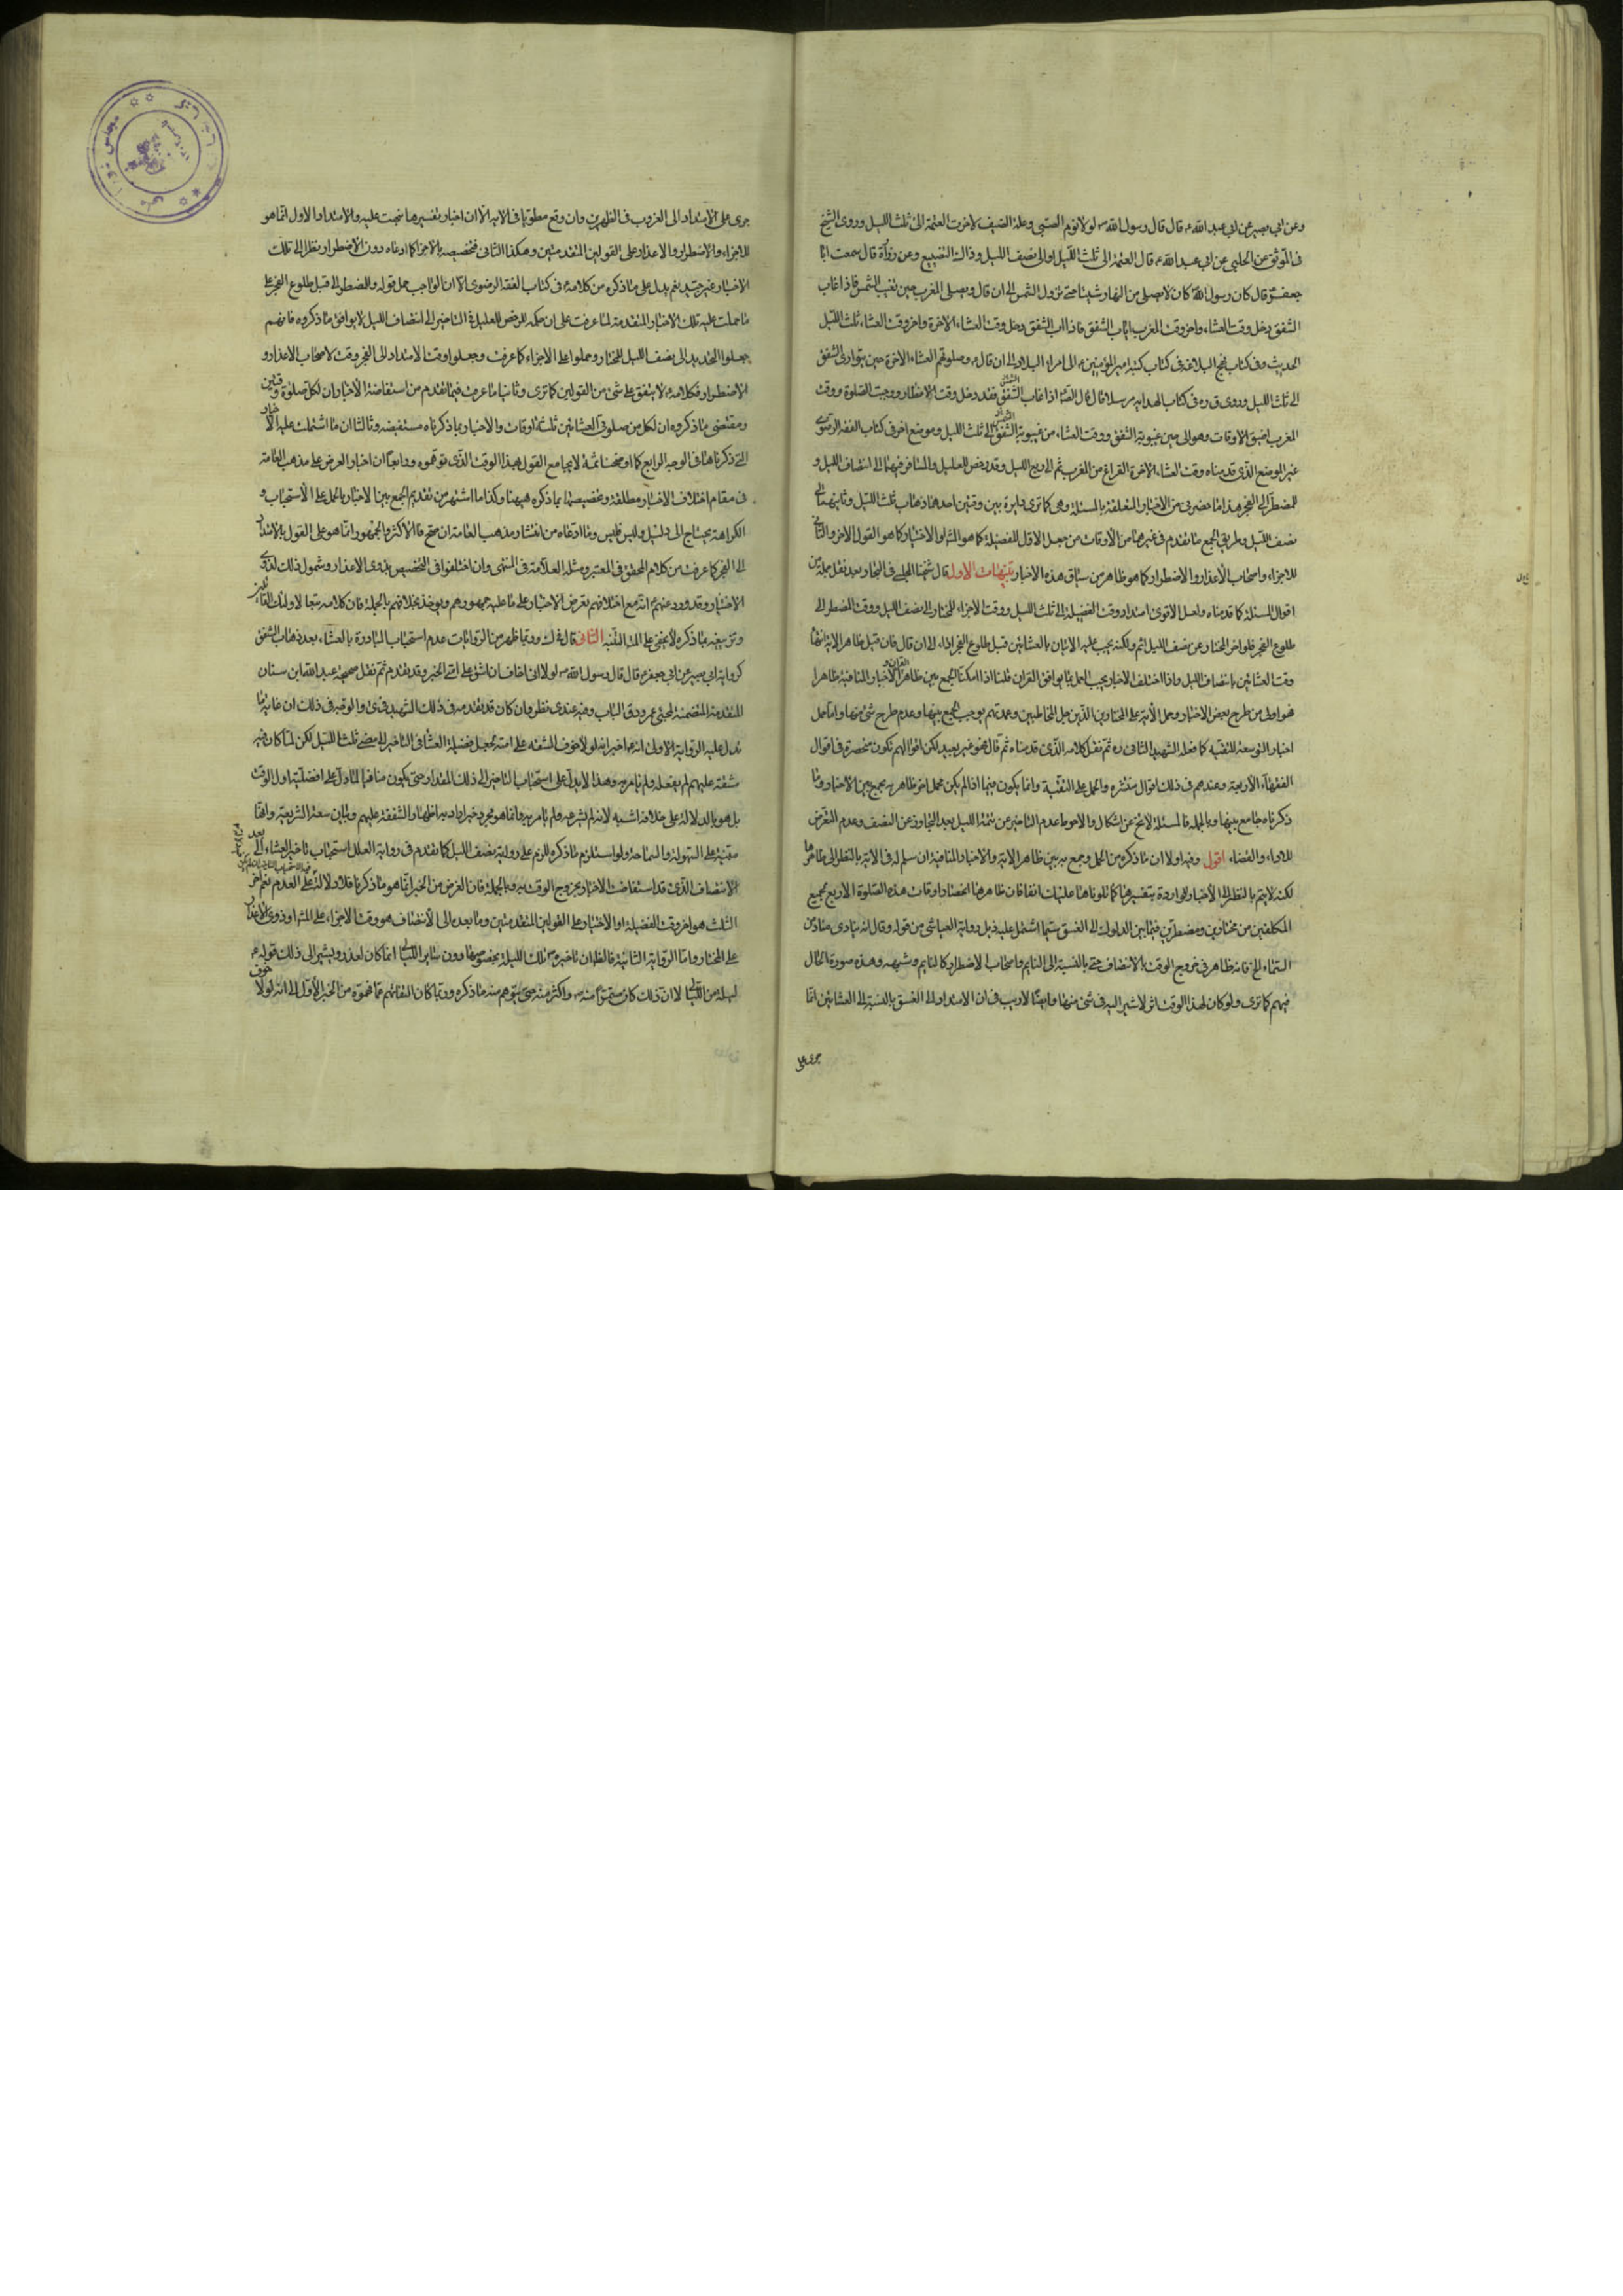 وعن ابي بصير عن ابي عبد الله ع قال قال رسول الله ص لولا نوم الصبي وعلة الضعيف لاخرت العتمة الى ثلث الليل وروى الشيخ
فى الموثق عن الحلبي عن ابي عبد الله ع قال العتمة الى ثلث الليل او الى نصف الليل وذاك التضييع وعن زرارة قال سمعت ابا
جعفر ع يقال كان رسول الله ص كان لا يصلي من النهار شيئا حتى تزول الشمس الى ان قال ويصلي المغرب حين تغيب الشمس فاذا غاب
الشفق دخل وقت العشاء واخر وقت المغرب اياب الشفق فاذا اب الشفق دخل وقت العشاء الاخرة واخر وقت العشاء ثلث الليل
الحديث وفى كتاب نهج البلاغة فى كتاب كتبه امير المؤمنين ع الى امراء البلاد الى ان قال ع وصلوا بهم العشاء الاخرة حين يتوارى الشفق
الى ثلث الليل وروى ق ره فى كتاب الهداية مرسلا قال قال الص ع اذا غاب الشفق فقد دخل وقت الافطار ووجبت الصلوة ووقت
المغرب اضيق الاوقات وهو الى حين غيبوبة الشفق ووقت العشاء من غيبوبة الشفق الى ثلث الليل وموضع اخر فى كتاب الفقه الرضوى
غير الموضع الذى قدمناه وقت العشاء الاخرة الفراغ من المغرب ثم الى ربع الليل وقد رخص للعليل والمسافر فيهما الى انتصاف الليل و
للمضطر الى الفجر هذا ما حضرنى من الاخبار المتعلقة بالمسئلة وهى كما ترى دايرة بين وقتين احدهما ذهاب ثلث الليل وثانيهما الى
نصف الليل وطريق الجمع ما تقدم فى غيرهما من الاوقات من جعل الاول للفضيلة كما هو المش او الاختيار كما هو القول الاخر والثانى
للاجزاء واصحاب الاعذار والاضطرار كما هو ظاهر من سياق هذه الاخبار تنبيهات الاول قال شيخنا المجلسى فى البحار بعد نقل جملة من
اقوال المسئلة كما قدمناه ولعل الاقوى امتداد وقت الفضيلة الى ثلث الليل ووقت الاجزاء للمختار الى نصف الليل ووقت المضطر الى
طلوع الفجر فلو اخر المختار عن نصف الليل اثم ولكنه يجب عليه الاتيان بالعشائين قبل طلوع الفجر اداء الى ان قال فان قيل ظاهر الاية انتهاء
وقت العشائين بانتصاف الليل واذا اختلف الاخبار يجب العمل بما يوافق القران قلنا اذا امكننا الجمع بين ظاهر القران والاخبار المنافية ظاهرا
فهو اولى من طرح بعض الاخبار وحمل الاية على المختارين الذين جل المخاطبين وعمدتهم يوجب الجمع بينها وعدم طرح شئ منها واما حمل
اخبار التوسعة للتقية كما فعله الشهيد الثانى ره ثم نقل كلامه الذى قدمناه ثم قال فهو غير بعيد لكن اقوالهم لم تكون منحصرة فى اقوال
الفقهاء الاربعة وعندهم فى ذلك اقوال منتشرة والحمل على التقية وانما يكون فيما اذا لم يكن محمل اخر ظاهر به يجمع بين الاخبار وما
ذكرناه جامع بينها وبالجملة فالمسئلة لا تخ عن اشكال والاحوط عدم التاخير عن تتمة الليل بعد التجاوز عن النصف وعدم التعرض
للاداء والقضاء اقول وفيه اولا ان ما ذكره من الحمل وجمع به بين ظاهر الاية والاخبار المنافية ان سلم له فى الاية بالنظر الى ظاهرها
لكنه لا يتم بالنظر الى الاخبار الواردة بتفسيرها كما تلوناها عليك انفا فان ظاهرها انحصار اوقات هذه الصلوة الاربع لجميع
المكلفين من مختارين ومضطرين فيما بين الدلوك الى الغسق سيما اشتمل عليه ذيل رواية العياشى من قوله وقال انه ينادى مناد من
السماء الخ فانه ظاهر فى خروج الوقت بالانتصاف حتى بالنسبة الى النايم واصحاب الاضطرار كالنايم وشبهه وهذه صورة الحال
فيهم كما ترى ولو كان لهذا الوقت اثر لاشير اليه فى شئ منها وايضا لا ريب فى ان الامتداد الى الغسق بالنسبة الى العشائين انما
جرى على
جرى على الامتداد الى الغروب فى الظهرين وان وقع مطويا فى الاية الا ان اخبار تفسيرها نبهت عليه والامتداد الاول انما هو
للاجزاء والاضطرار والاعذار على القولين المتقدمين وهكذا الثانى فتخصيصه بالاجزاء كما ادعاه دون الاضطرار بنظر الى تلك
الاخبار غير جيد نعم يدل على ما ذكره من كلامه ع فى كتاب الفقه الرضوى الا ان الواجب حمل قوله وللمضطر الى قبل طلوع الفجر على
ما حملت عليه تلك الاخبار المتقدمة لما عرفت على ان حكمه المرخص للعليل فى التاخير الى انتصاف الليل لا يوافق ما ذكروه فانهم
جعلوا التحديد الى نصف الليل للمختار وحملوا على الاجزاء كما عرفت وجعلوا وقت الامتداد الى الفجر وقت لاصحاب الاعذار و
الاضطرار فكلامه ع لا يتفق على شئ من القولين كما ترى وثانيا ما عرفت فيما تقدم من استفاضة الاخبار ان لكل صلوة وقتين
ومقتضى ما ذكروه ان لكل من صلوتى العشائين ثلثة اوقات والاخبار بما ذكرناه مستفيضة وثالثا ان ما اشتملت عليه الاخبار
التى ذكرناها فى الوجه الرابع كما اوضحناه ثمة لا يجامع القول بهذا الوقت الذى توهموه ورابعا ان اخبار العرض على مذهب العامة
فى مقام اختلاف الاخبار مطلقة وتخصيصها بما ذكره هيهنا وكذا ما اشتهر من تقديم الجمع بين الاخبار بالحمل على الاستحباب و
الكراهة يحتاج الى دليل وليس فليس وما ادعاه من انتشار مذهب العامة ان صح فالاكثر والجمهور انما هو على القول بالامتداد
الى الفجر كما عرفت من كلام المحقق فى المعتبر ومثله العلامة فى المنتهى وان اختلفوا فى التخصيص بذوى الاعذار وشمول ذلك لذوى
الاختيار وقد ورد عنهم ع انه مع اختلافهم بعرض الاخبار على ما عليه جمهورهم ويؤخذ بخلافهم وبالجملة فان كلامه تبعا لاولئك القائلين
وتزييفه بما ذكره لا يخفى على المتنبه الثانى قال فى ك وربما ظهر من الروايات عدم استحباب المبادرة بالعشاء بعد ذهاب الشفق
كرواية ابي بصير عن ابي جعفر ع قال قال رسول الله ص لولا انى اخاف ان اشق على امتى الخبر وقد تقدم ثم نقل صحيحة عبد الله ابن سنان
المتقدمة المتضمنة لمجئ عمر ودق الباب وفيه عندى نظر وان كان قد تقدمه فى ذلك الشهيد فى ى والوجه فى ذلك ان غاية ما
تدل عليه الرواية الاولى انه ع اخبر انه لولا خوف المشقه على امته لجعل فضيلة العشاء فى التاخير الى مضى ثلث الليل لكن لما كان فيه
مشقة عليهم لم يفعله ولم يامر به وهذا لا يدل على استحباب التاخير الى ذلك المقدار حتى يكون منافيا لما دل على افضلية اول الوقت
بل هو بالدلالة على خلافه اشبه لانه لم يشرعه ولم يامر به وانما هو مجرد خبر اراد به اظهار الشفقة عليهم وبيان سعة الشريعة وانها
مبنية على السهولة والسماحة ولو استلزم ما ذكره للزم على رواية نصف الليل كما تقدم فى رواية العلل استحباب تاخير العشاء الى بعد
الانتصاف الذى قد استفاضت الاخبار بخروج الوقت به وبالجملة فان الغرض من الخبر انما هو ما ذكرنا فلا دلالة على العدم نعم اخر
الثلث هو اخر وقت الفضيلة او الاختيار على القولين المتقدمين وما بعده الى الانتصاف هو وقت الاجزاء على المش او ذوى الاعذار
على المختار واما الرواية الثانية فالظ ان تاخيره ص تلك الليلة بخصوصها دون ساير الليالى انما كان لعذر ويشير الى ذلك قوله ع
ليلة من الليالى لا ان ذلك كان مستمرا منه ص واكثر منه حتى يتوهم منه ما ذكره وربما كان التفاتهم مما فهموه من الخبر الاول الى انه لولا خوف